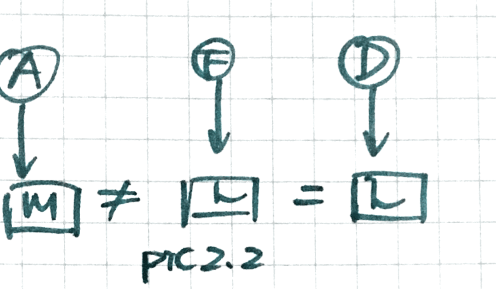 A F D
M ≠ L = L
pic2.2